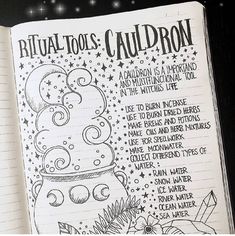 RITUAL TOOLS: CAULDRON
A CAULDRON IS A IMPORTAND
AND MULTIFUNCTIONAL TOOL
IN THE WITCHES LIFE
• USE TO BURN INCENSE
• USE TO BURN DRIED HERBS
• MAKE BREWS AND POTIONS
• MAKE OILS AND HERB MIXTURES
• USE FOR SPELLWORK
• MAKE MOONWATER
• COLLECT DIFFEREND TYPES OF
WATER:
RAIN WATER
SNOW WATER
ICE WATER
RIVER WATER
OCEAN WATER
SEA WATER